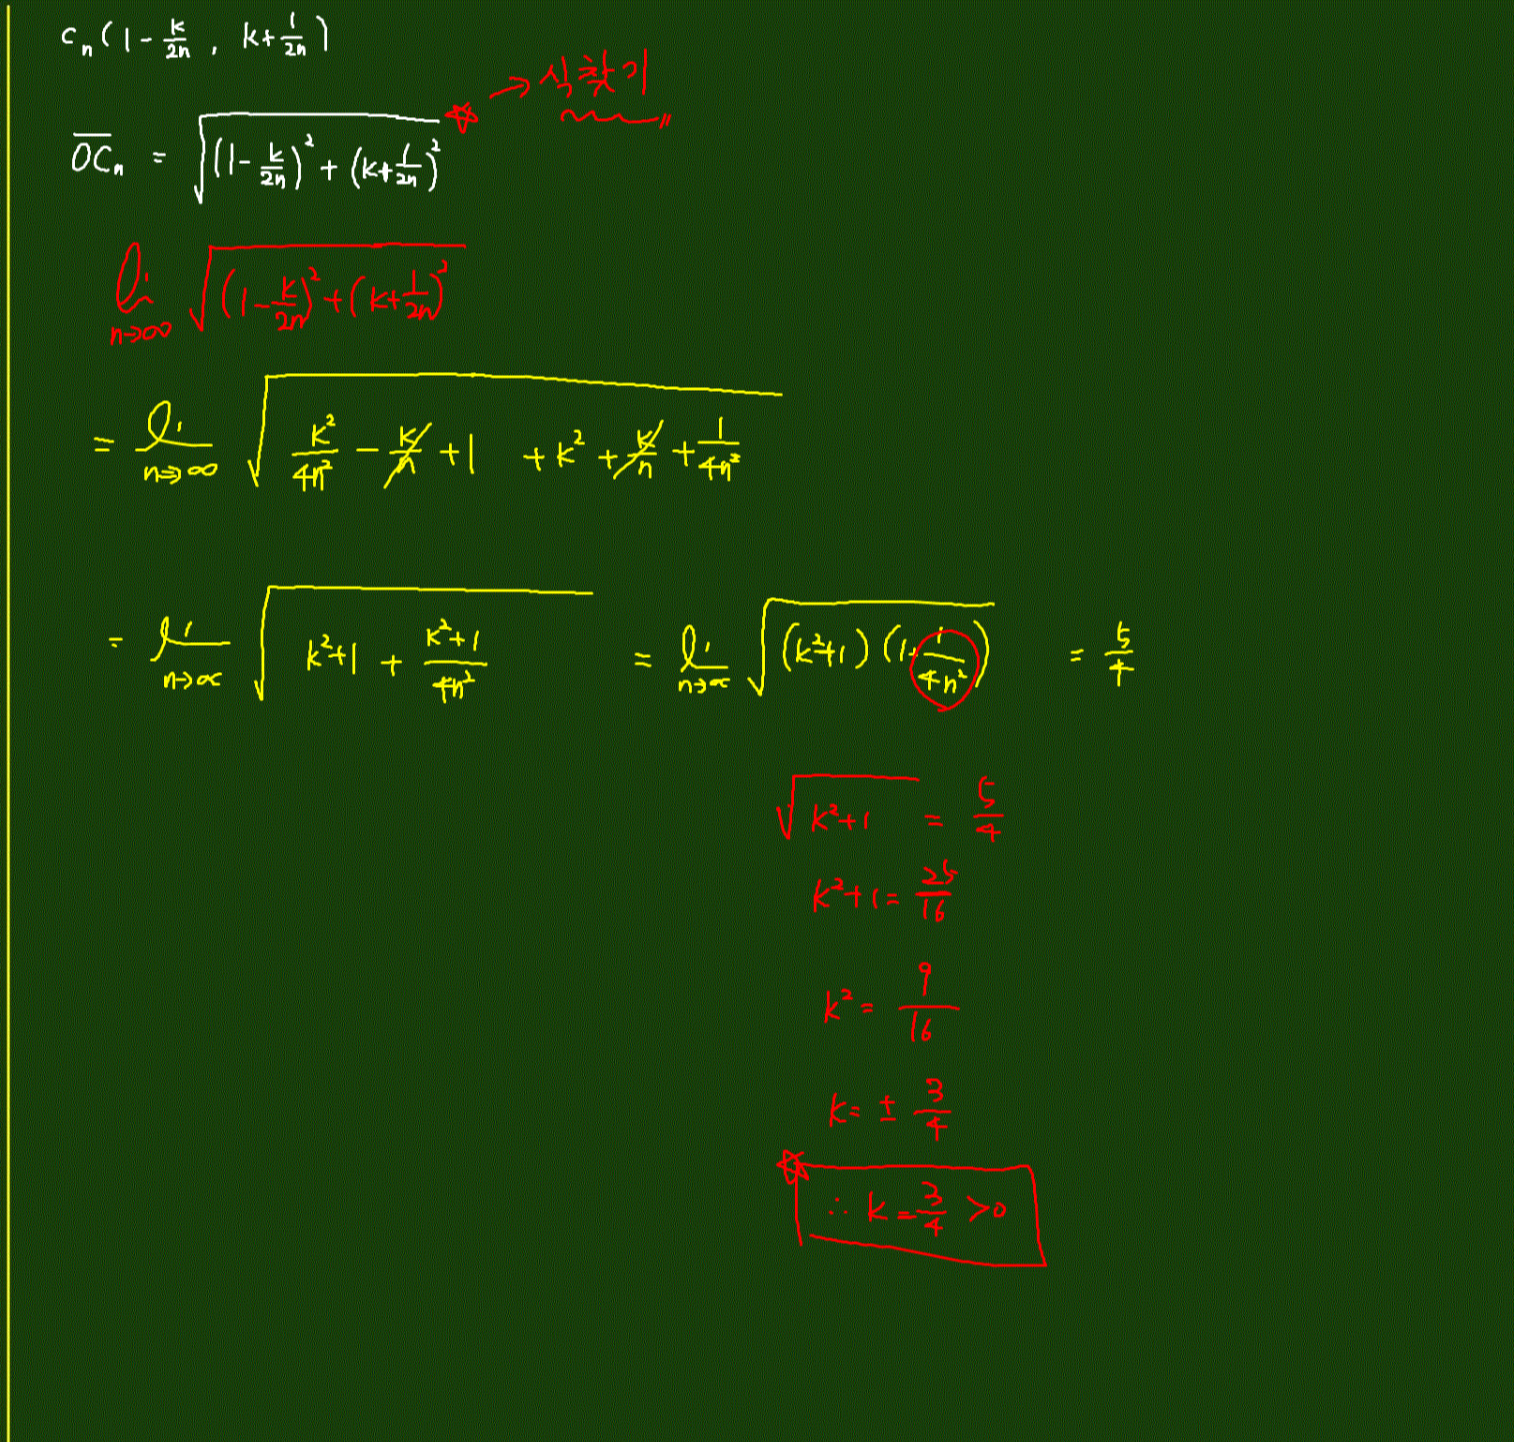 Cₙ(1-k/2n, k+1/2n)
→식찾기
OCₙ = √((1-k/2n)²+(k+1/2n)²)
lim n→∞ √((1-k/2n)²+(k+1/2n)²)
= lim n→∞ √(k²/4n² - k/n + 1 + k² + k/n + 1/4n²)
= lim n→∞ √(k²+1 + (k²+1)/4n²) = lim n→∞ √((k²+1)(1+1/4n²)) = 5/4
√(k²+1) = 5/4
k²+1 = 25/16
k² = 9/16
k = ± 3/4
∴ k = 3/4 >0